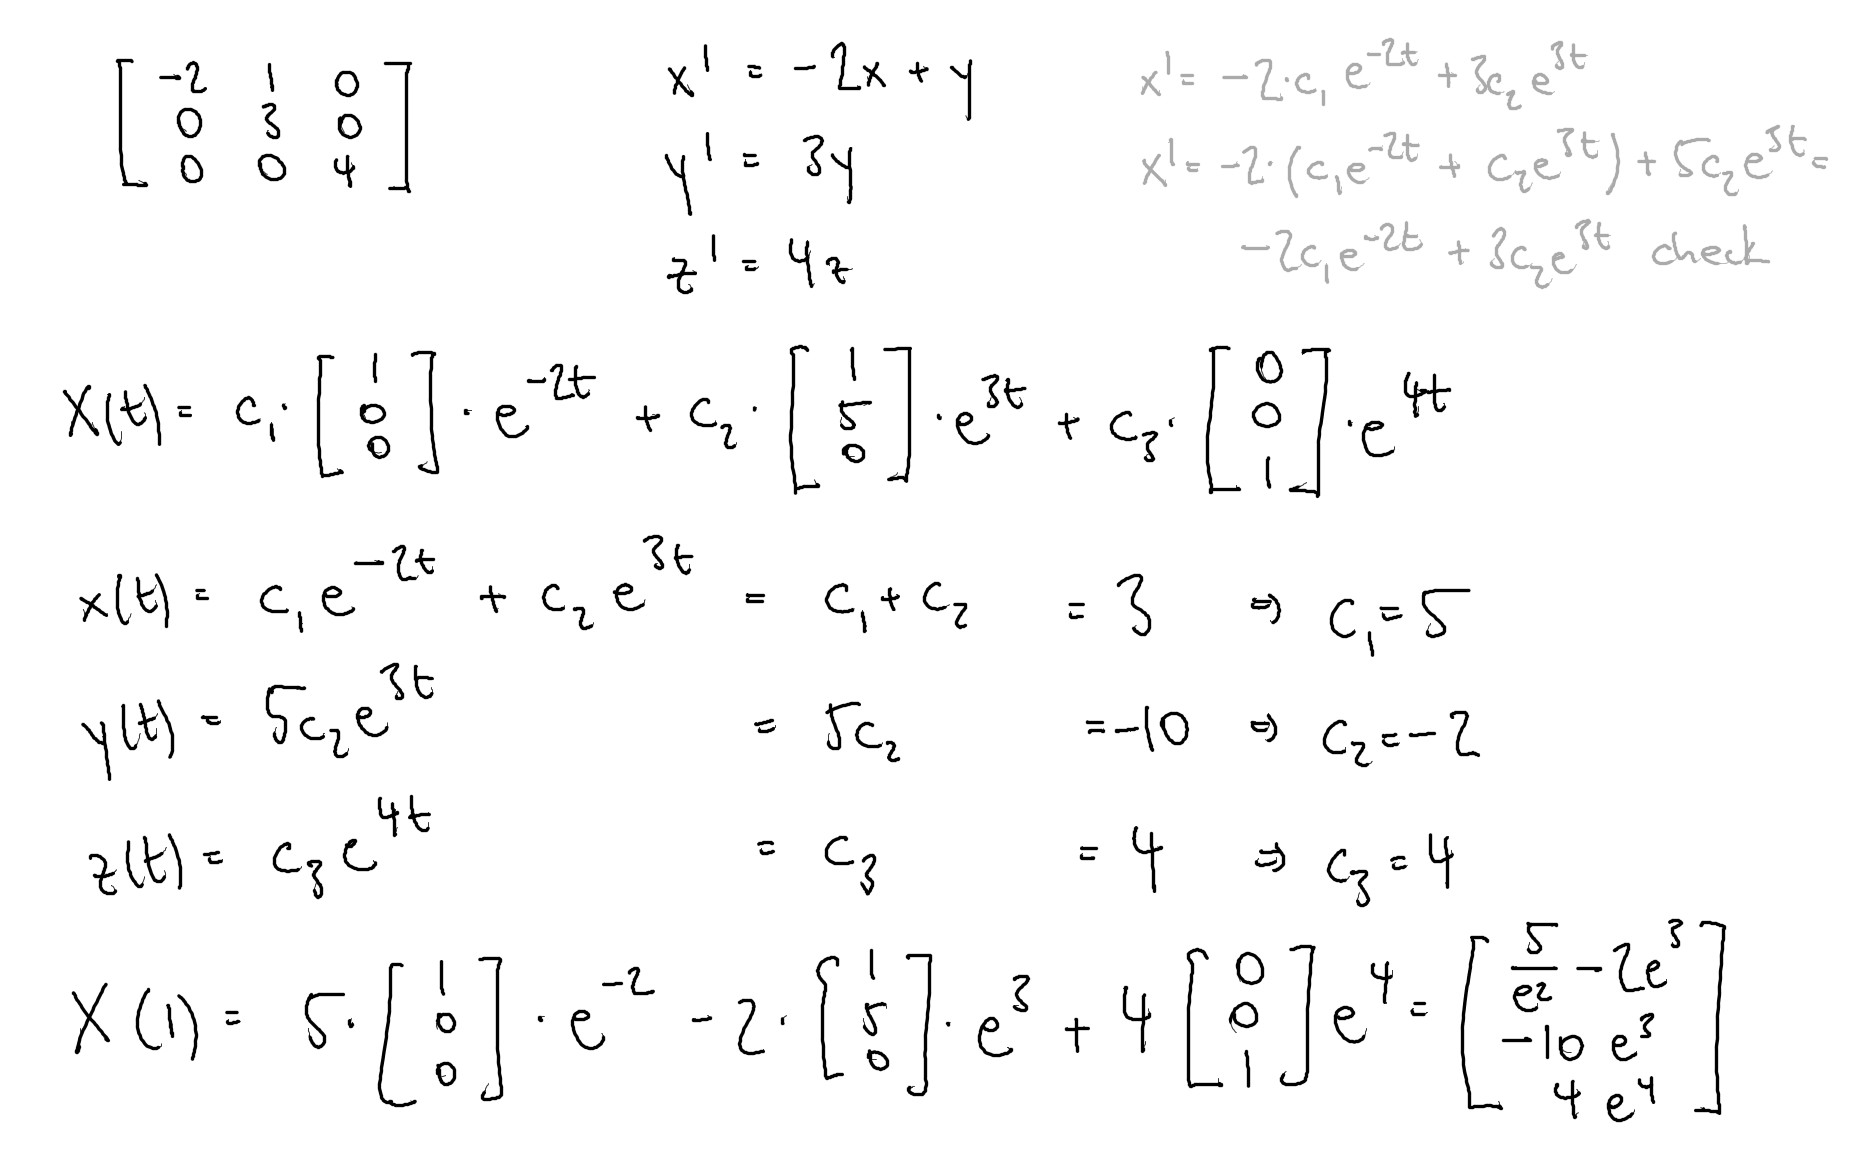 [ -2 1 0 ] x' = -2x + y x' = -2·c₁ e^{-2t} + 3c₂ e^{3t}
[ 0 3 0 ] y' = 3y x' = -2·(c₁e^{-2t} + c₂e^{3t}) + 5c₂e^{3t} =
[ 0 0 4 ] z' = 4z -2c₁e^{-2t} + 3c₂e^{3t} check
X(t) = c₁· [ 1 0 0 ] · e^{-2t} + c₂· [ 1 5 0 ] · e^{3t} + c₃· [ 0 0 1 ] · e^{4t}
x(t) = c₁e^{-2t} + c₂ e^{3t} = c₁ + c₂ = 3 ⇒ c₁ = 5
y(t) = 5c₂e^{3t} = 5c₂ = -10 ⇒ c₂ = -2
z(t) = c₃e^{4t} = c₃ = 4 ⇒ c₃ = 4
X(1) = 5· [ 1 0 0 ] · e^{-2} - 2· [ 1 5 0 ] · e³ + 4 [ 0 0 1 ] e⁴ = [ 5/e² - 2e³ -10 e³ 4 e⁴ ]